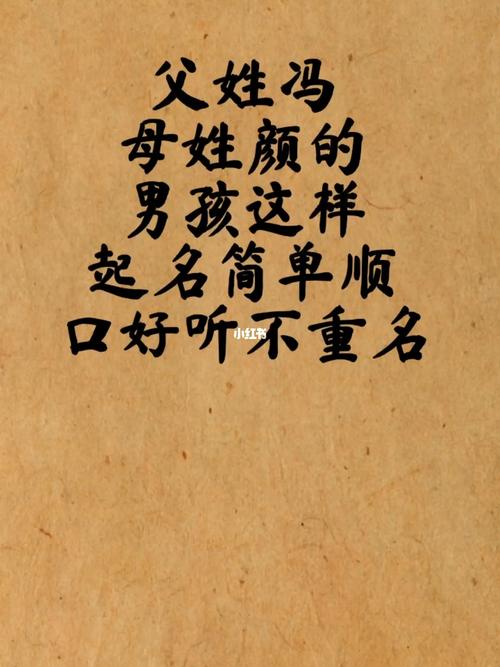 父姓冯
母姓颜的
男孩这样
起名简单顺
口好听不重名
小红书